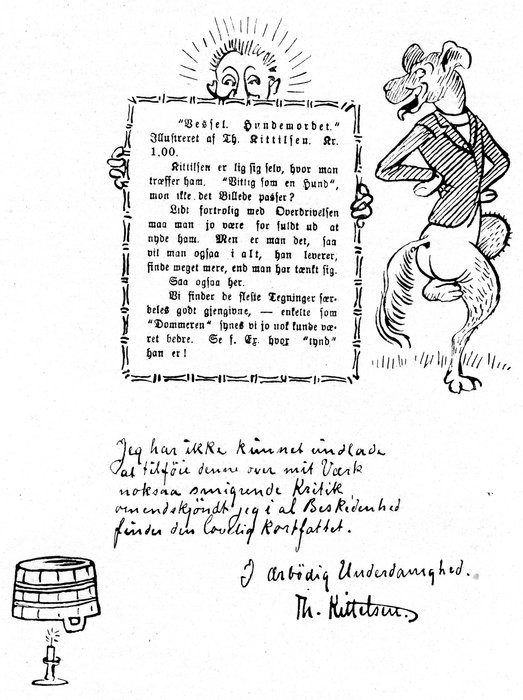 "Vessel. Hundemordet."
Illustreret af Th. Kittilsen. Kr.
1.00.
Kittilsen er lig sig selv, hvor man
træffer ham. "Vittig som en Hund",
mon ikke det Billede passer?
Lidt fortrolig med Overdrivelsen
maa man jo være for fuldt ud at
nyde ham. Men er man det, saa
vil man ogsaa i alt, han leverer,
finde meget mere, end man har tænkt sig.
Saa ogsaa her.
Vi finder de fleste Tegninger fær-
deles godt gjengivne, — enkelte som
"Dommeren" synes vi jo nok kunde væ-
ret bedre. Se f. Ex. hvor "tynd"
han er!
Jeg har ikke kunnet undlade
at tilföie denne over mit Værk
noksaa smigrende Kritik
omendskjöndt jeg i al Beskedenhed
finder den lovlig kortfattet.
I ærbödig Underdanighed.
Th. Kittelsen.